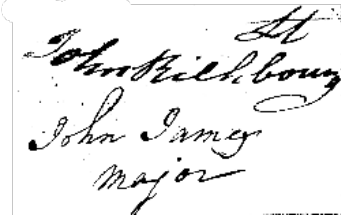 Lt
John Bilhboung
John James
major